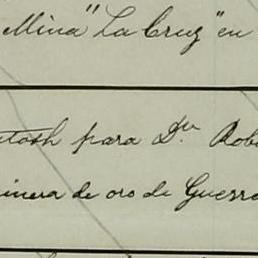 Mina "La Cruz" en
ntosh para Dn Rob
minera de oro de Guerre